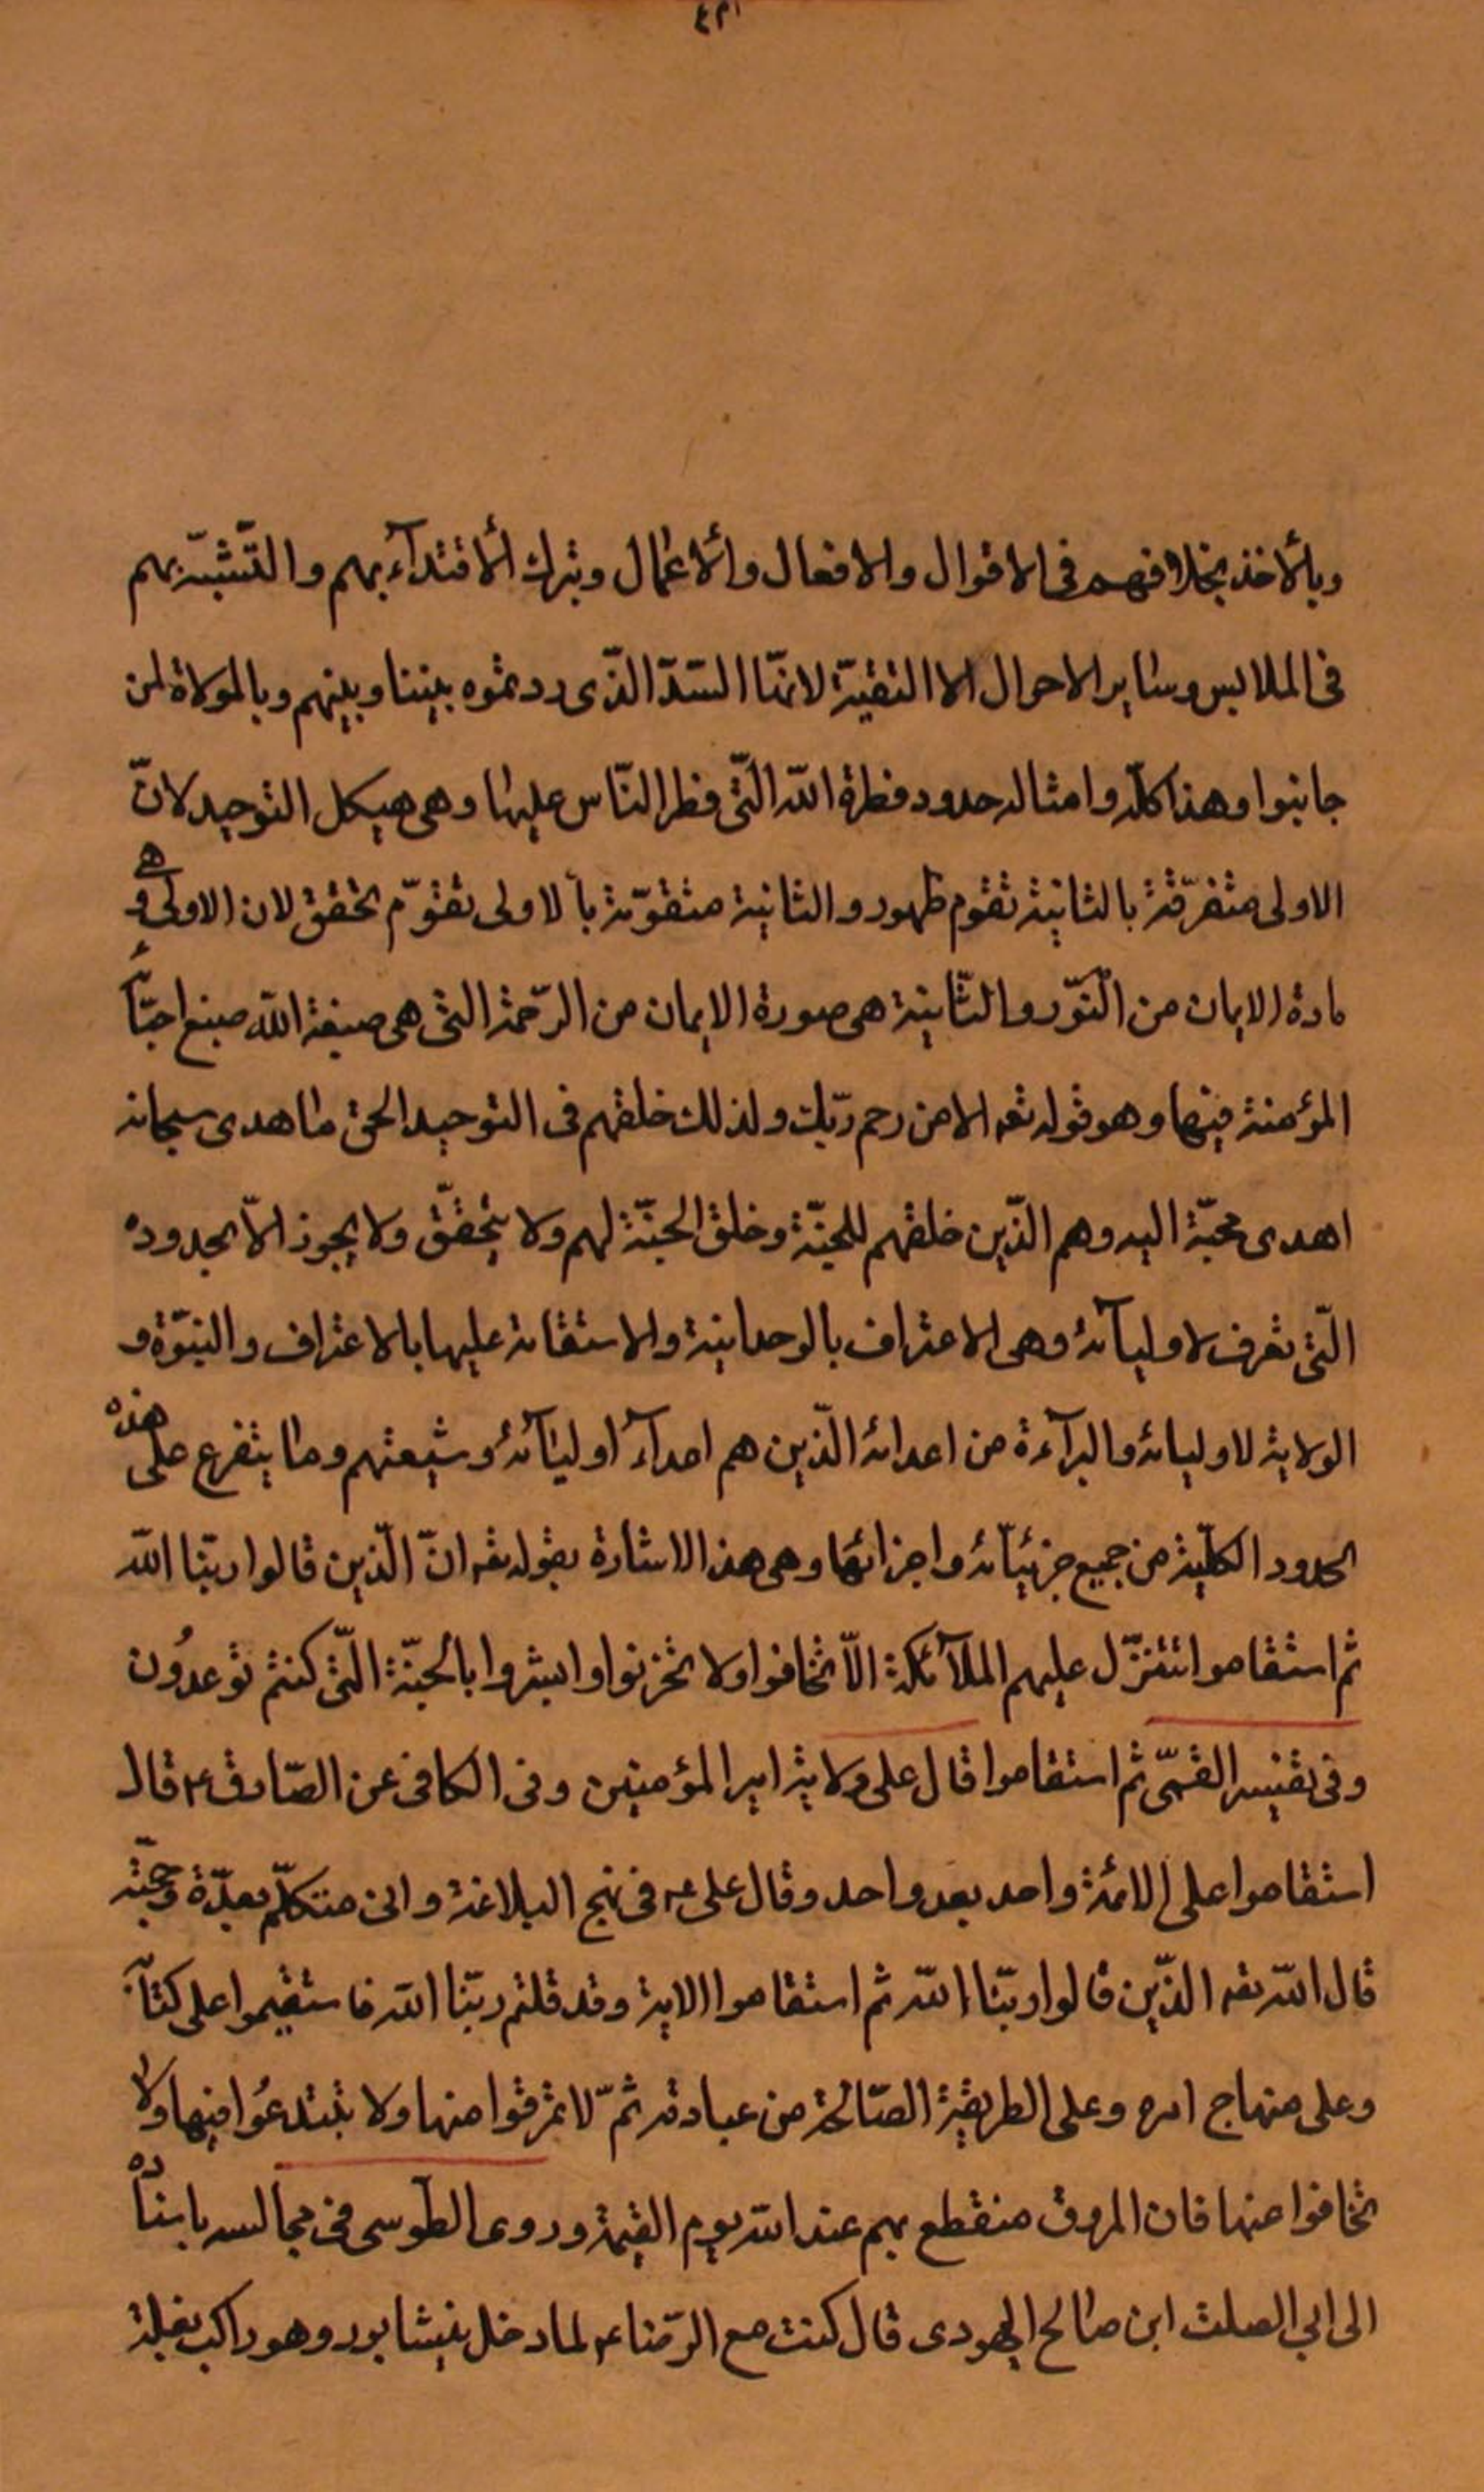 وبالأخذ بخلافهم فى الاقوال والافعال والأعمال وبترك ألاقتدآء بهم والتّشبّه بهم
فى الملابس وساير الاحوال الا التقيّة لانهّا السّدّ الذّى ردمتوه بيننا وبينهم وبالموالاة لمن
جانبوا وهذا كلّه وامثاله حدود فطرة اللّه التّى فطر النّاس عليها وهى هيكل التوحيد لانّ
الاولى متفرّقة بالثانية تقوم ظهور والثانية متقوّمة بالاولى تقوّم تحقق لان الاولى هى و
مادة الايمان من النّور والثّانية هى صورة الايمان من الرّحمة التى هى صبغة اللّه صبغ احبّاء
المؤمنة فيها وهو قوله تعه الا من رحم ربّك ولذلك خلقهم فى التوحيد الحق ما اهدى سبحانه
اهدى محبّة اليه وهم الذّين خلقهم للجنّة وخلق الجنّة لهم ولا يتحقّق ولا يجوز الاّ بحدوده
التّى تعرف لاوليآئه وهى الاعتراف بالوحدانية والاستقامة عليها بالاعتراف والنبوّة و
الولاية لاوليائه والبرآءة من اعدائه الذّين هم اعدآء اوليآئه وشيعتهم وما يتفرع على هذه
الحدود الكلّية من جميع جزئيّاته واجزائها وهى هذ الاشارة بقوله تعه انّ الّذين قالوا ربّنا اللّه
ثم استقاموا تتنزّل عليهم الملآئكة الاّ تخافوا ولا تحزنوا وابشروا بالجنّة التّى كنتم توعدُون
وفى تفسير القمّى ثم استقاموا قال على ولاية امير المؤمنين وفى الكافى عن الصّادق ع قال
استقاموا على الائمة واحد بعد واحد وقال على ع فى نهج البلاغة وانى متكلّم بعدّة وحجّته
قال اللّه تعه الذّين قالوا ربّنا اللّه ثم استقاموا الاية وقد قلتم ربّنا اللّه فاستقيموا على كتابه
وعلى منهاج امره وعلى الطريقية الصّالحة من عبادته ثمّ لا تمرقوا منها ولا تبتدعُوا فيها ولا
تخافوا عنها فان المروق منقطع بهم عند اللّه يوم القيمة وروى الطوسى فى مجالسه باسناده
الى ابي الصلت ابن صالح الهودى قال كنت مع الرّضا ع لما دخل نيشابور وهو راكب بغلة